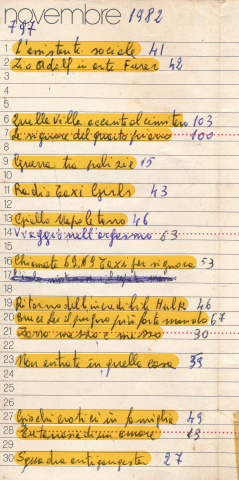 novembre 1982
797
1 L'assistente sociale 41
2 Zio Adolf in arte Furer 42
3
4
5
6 Quella villa accanto al cimitero 103
7 Le signore del quarto piano 100
8
9 Guerra tra polizie 15
10
11 Radio Taxi Girls 43
12
13 Giallo Napoletano 46
14 Viaggio nell'orgasmo 63
15
16 Chiamate 6969 taxi per signora 53
17
18
19 Ritorno dell'incredibile Hulk 46
20 Bruce Lee il pugno più forte mondo 67
21 Zorro mezzo e mezzo 30
22
23 Non entrate in quella casa 35
24
25
26
27 Giochi erotici in famiglia 49
28 di un amore
29
30 Squadra antigangster 27